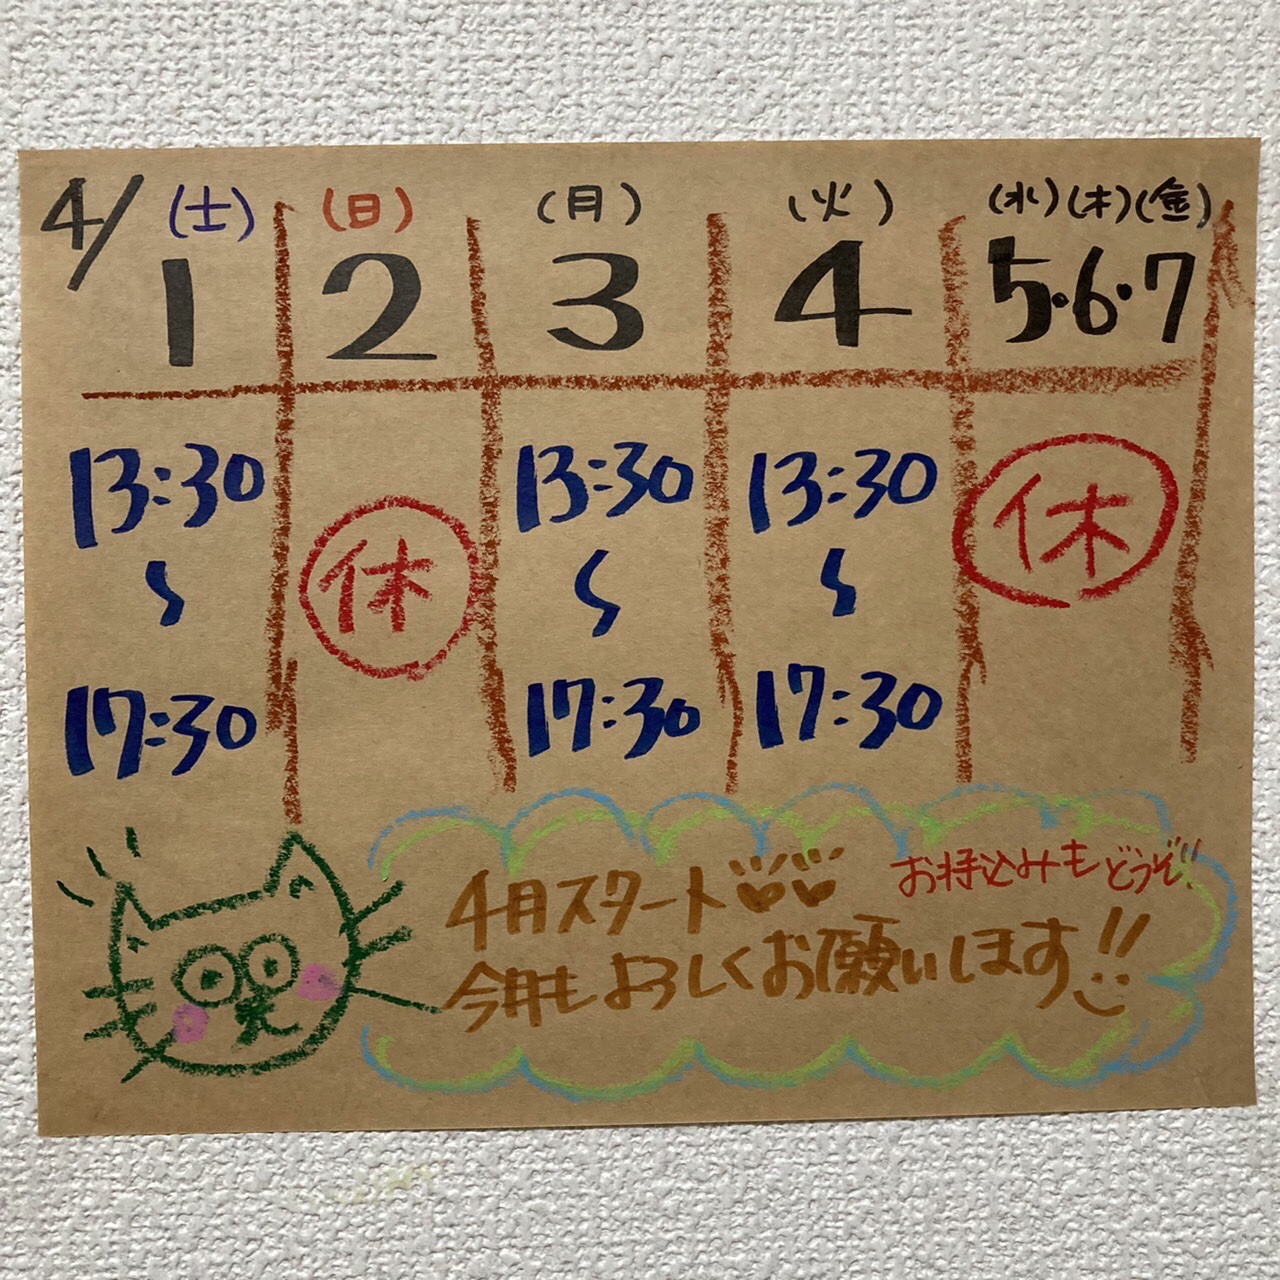 4/
(土) (日) (月) (火) (水)(木)(金)
1 2 3 4 5・6・7
13:30 13:30 13:30
休 休
〜 〜 〜
17:30 17:30 17:30
お持込みもどうぞ!!
4月スタート♥♥
今年もよろしくお願いします!!